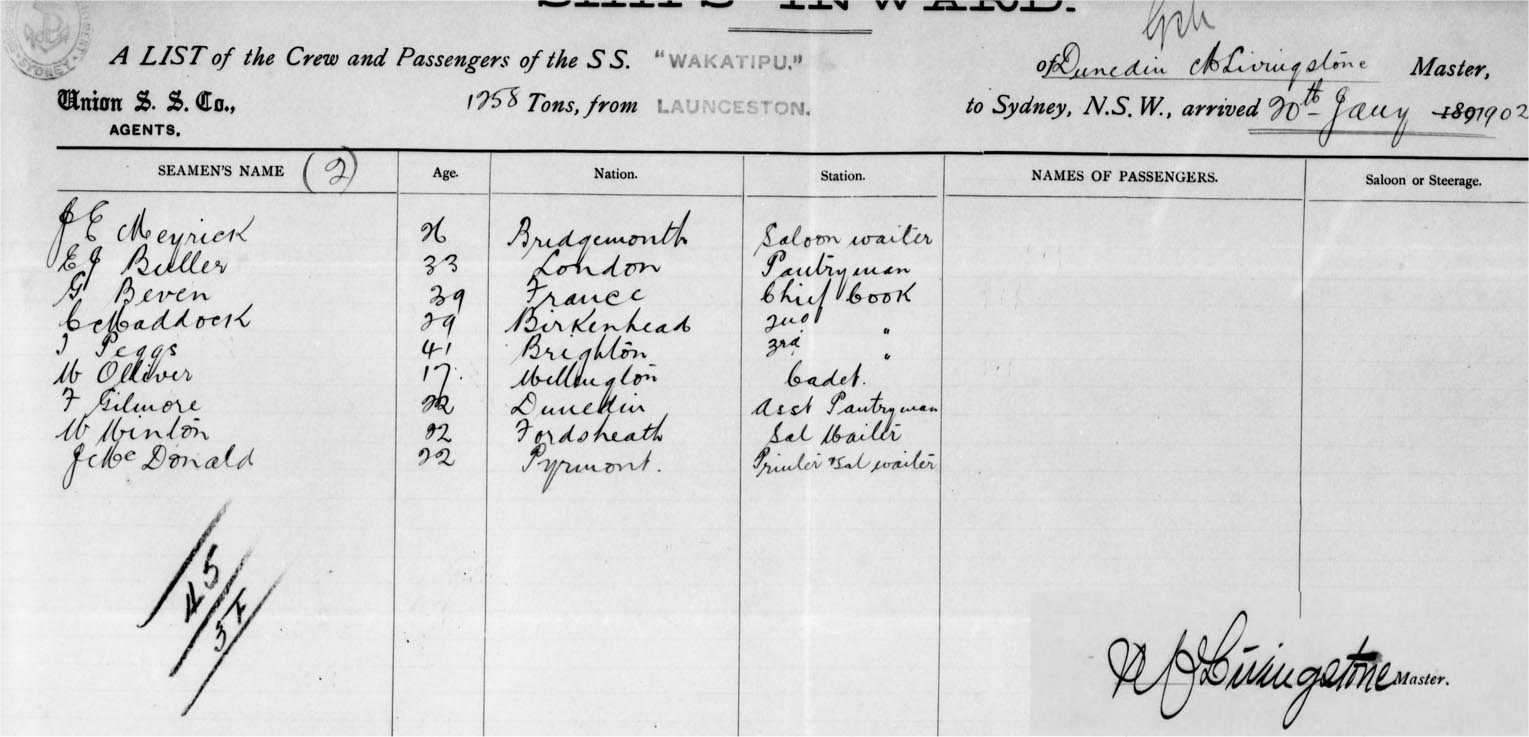 SHIPS INWARD.
A LIST of the Crew and Passengers of the S S. "WAKATIPU." of Dunedin A Livingstone Master,
Union S. S. Co., 1258 Tons, from LAUNCESTON. to Sydney, N.S.W., arrived 20th Jany 1891902
AGENTS.
SEAMEN'S NAME (2) Age. Nation. Station. NAMES OF PASSENGERS. Saloon or Steerage.
J E Meyrick 26 Bridgemonth Saloon waiter
E J Buller 33 London Pantryman
G Beven 39 France Chief Cook
C Maddock 29 Birkenhead 2nd "
T Peggs 41 Brighton 3rd "
W Olliver 17. Wellington Cadet.
F Gilmore 22 Dunedin Asst Pantryman
W Winton 22 Fordsheath Sal Waiter
J Mc Donald 22 Pyrmont. Printer & Sal waiter
45
Livingstone Master.